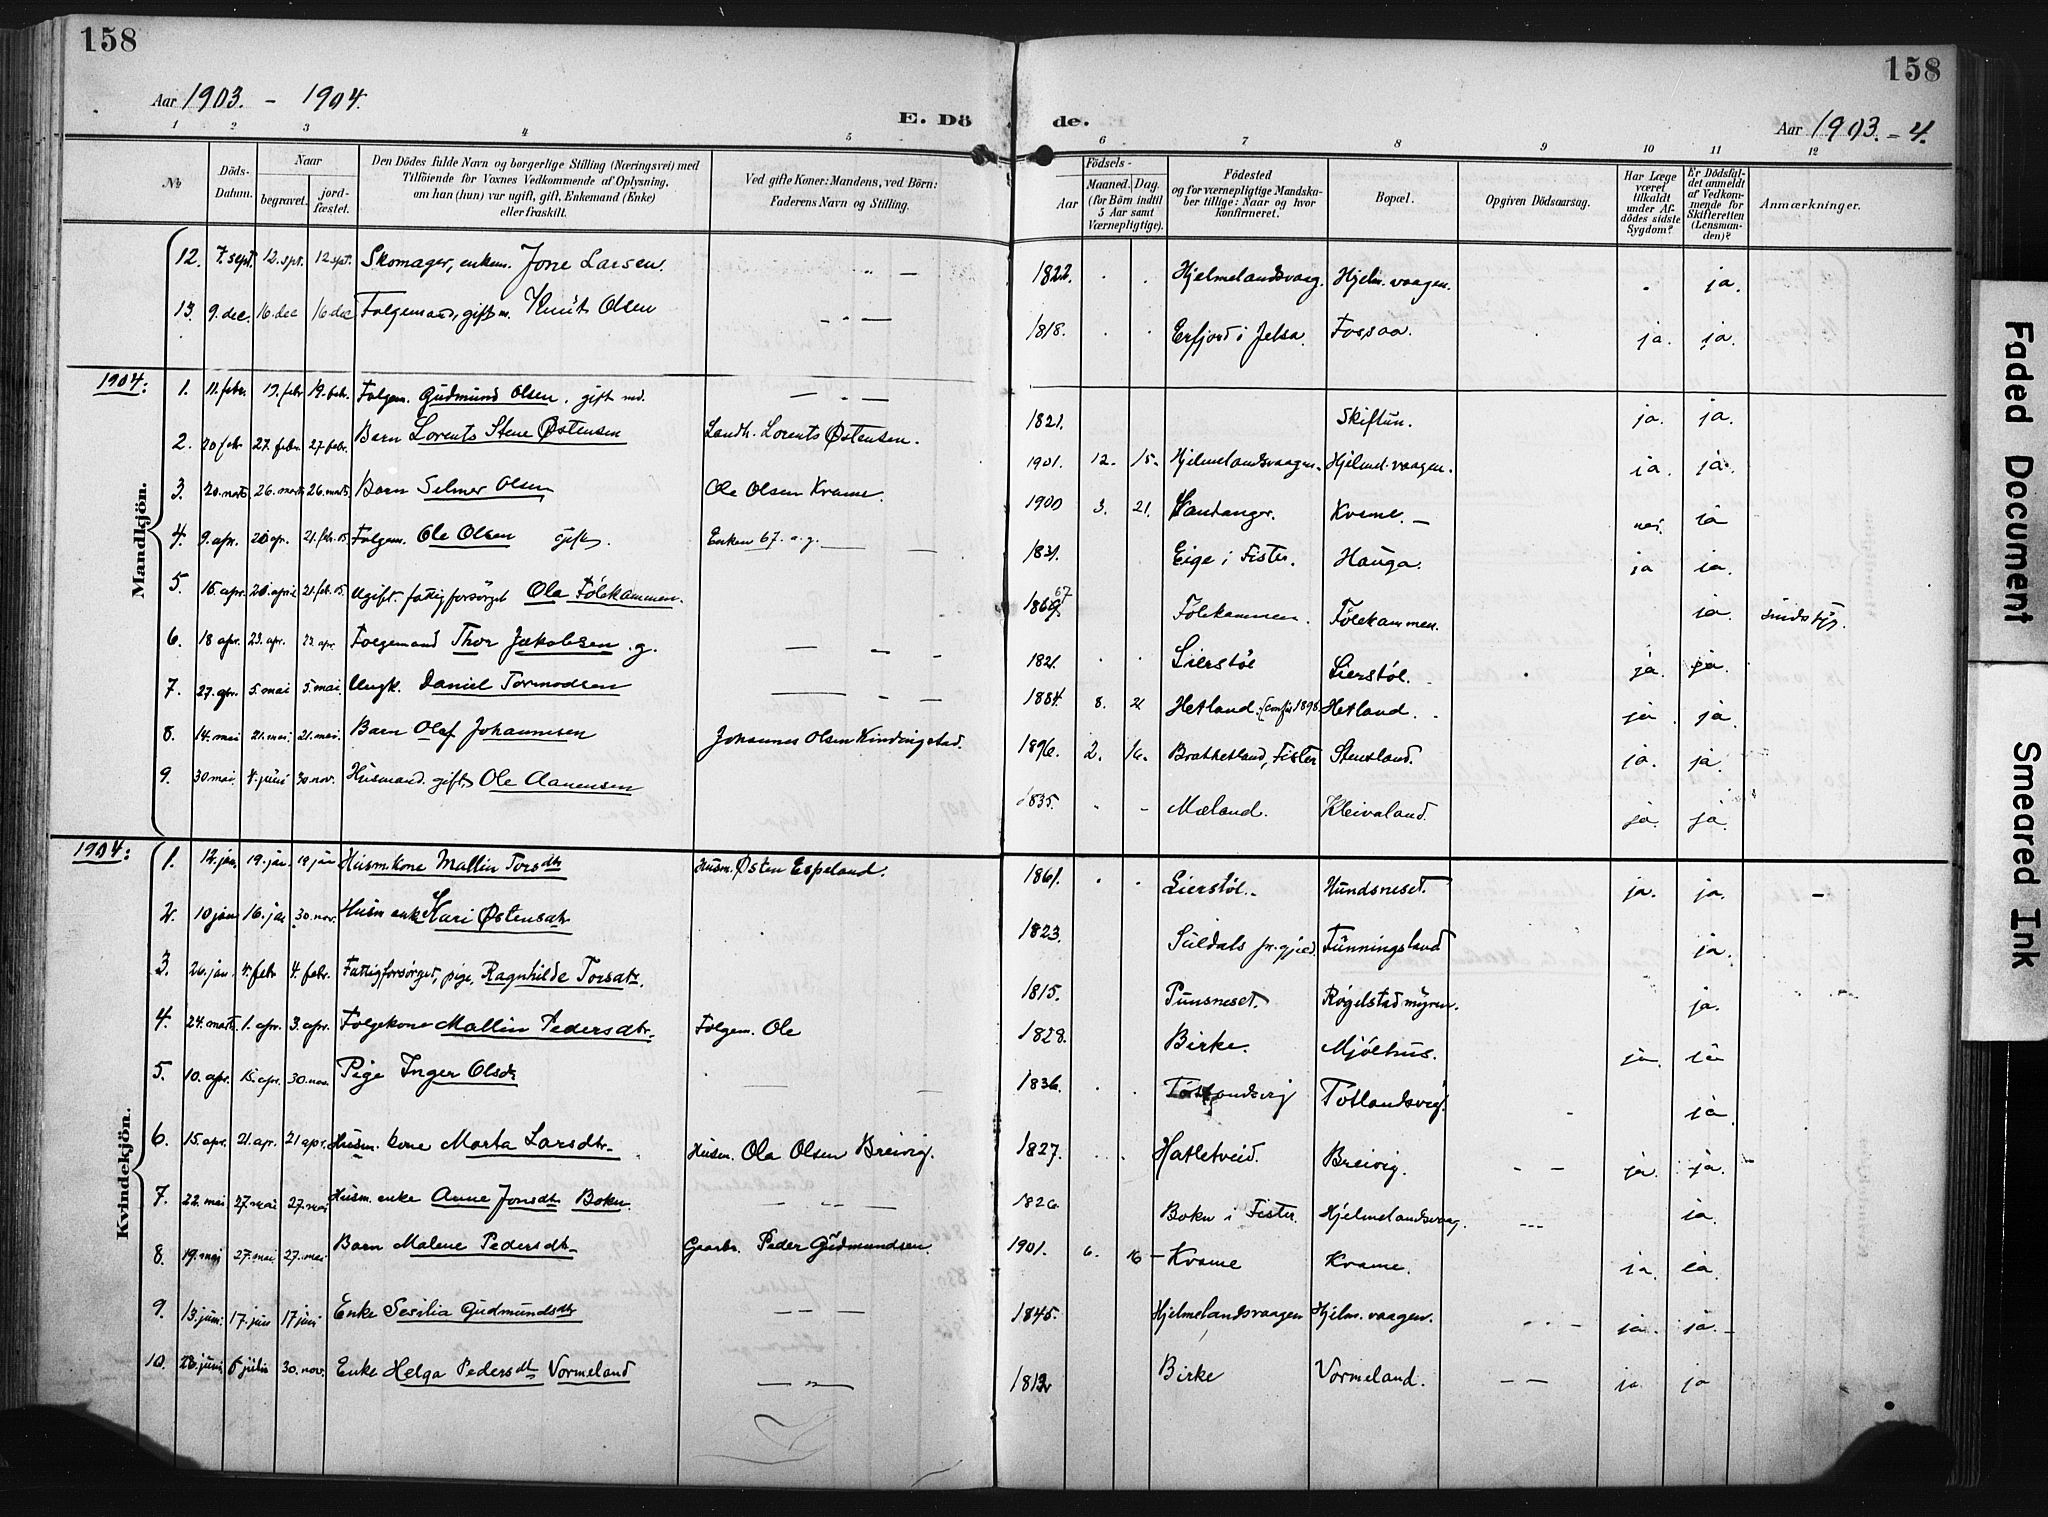 158
158
Aar 1903. - 1904.
E. Dö de.
Aar 1903. - 4.
1 2 3 4 5 6 7 8 9 10 11 12
№
Döds-Datum.
Naar
begravet.
jord-fæstet.
Den Dödes fulde Navn og borgerlige Stilling (Næringsvei) med
Tilföiende for Voxnes Vedkommende af Oplysning,
om han (hun) var ugift, gift, Enkemand (Enke)
eller fraskilt.
Ved gifte Koner: Mandens, ved Börn:
Faderens Navn og Stilling.
Födsels-
Aar
Maaned. Dag.
(for Börn indtil
5 Aar samt
Værnepligtige).
Födested
og for værnepligtige Mandska-
ber tillige: Naar og hvor
konfirmeret.
Bopæl.
Opgiven Dödsaarsag.
Har Læge
været
tilkaldt
under Af-
dödes sidste
Sygdom?
Er Dödsfal-
det anmeldt
af Vedkom-
mende for
Skifteretten
(Lensman-
den)?
Anmærkninger.
Mandkjön.
12. 7. sept. 12. spt. 12 spt. Skomager, enkem. Jone Larsen. " — 1822. Hjelmelandsvaag. Hjelm. vaagen. ja.
13. 9. dec. 16. dec 16. dec Folgemand, gift m. Knut Olsen — " — 1818. Erfjord i Jelsa. Fossaa. ja. ja.
1904:
1. 11. febr. 19. febr 19. febr. Folgem. Gudmund Olsen. gift md. — " — 1821. Skiftun. ja. ja.
2. 20 febr 27. febr. 27 febr. Barn Lorents Stene Østensen Landh. Lorents Østensen. 1901. 12. 15. Hjelmelandsvaagen. Hjelmel. vaagen. ja. ja.
3. 20. marts 26. marts 26. marts Barn Selmer Olsen Ole Olsen Kvame. 1900 3. 21. Vandanger. Kvame. — nei. ja
4. 9. apr. 20 apr. 21. febr. 05. Folgem. Ole Olsen gift. Enken 67. a. g. — 1831. Eige i Fister. Hauga. ja ja.
5. 15. apr. 20. april 21. feb. 05. Ugift. fattigforsörget Ola Fölekammen. 1869. 67 Fölekammen. Fölekammen. ja. sindssyg.
6. 18 apr. 23. apr. 23. apr. Folgemand Thor Jakobsen. g. — " — 1821. Lierstöl Lierstöl. ja. ja.
7. 27. apr. 5. mai 5. mai Ungk. Daniel Tormodsen — " — 1884. 8. 21 Hetland. (conf. 1898. Hetland. ja. ja.
8. 14. mai 21. mai. 21. mai. Barn Olaf Johannesen Johannes Olsen Kindingstad. 1896. 2. 16. Brathetland, Fister Stensland. ja. ja.
9. 30 mai. 4. juni 30 nov. Husmand. gift. Ole Aanensen 1835. Mæland. Kleivaland. ja. ja.
1904:
Kvindekjön.
1. 12. jan. 19. jan. 19 jan Husm.kone Mallin Torsdtr Husm. Østen Espeland. 1861. Lierstöl. Hundsneset. ja. ja. —
2. 10 jan 16. jan 30. nov. Husm enke Kari Østensdtr 1823. Suldals pr. gjeld. Funningsland ja.
3. 26. jan. 4. febr 4. febr. Fattigforsörget, pige. Ragnhilde Torsdtr. 1815. Punsneset. Røgelstadmyren. ja.
4. 24. marts 1. apr. 3. apr. Folgekone Mallin Pedersdtr. Folgem. Ole 1828. Birke. Mjölhus. ja. ja
5. 10. apr. 15. apr. 30. nov. Pige Inger Olsdr — 1836. Töllandsvig Tötlandsvig. ja
6. 15. apr. 21. apr. 21 apr. Husm. kone Marta Larsdtr. Husm. Ola Olsen Breivig. 1827. Hatletveid. Breivig. — — ja. ja.
7. 22. mai 27. mai 27. mai Husm. enke Anne Jonsdtr Bokn. — " — 1826. Bokn i Fister. Hjelmelandsvaag. --- ja.
8. 19. mai 27. mai 27. mai Barn Malene Pedersdtr Gaarbr. Peder Gudmundsen. 1901. 6. 16 — Kvame Kvame. ja. ja.
9. 13. juni. 17. jun 17 juni Enke Sesilia Gudmundsdtr — — — 1845. Hjelmelandsvaagen Hjelm. vaagen. ja. ja. —
10. 28. juni 5 julis 30. nov. Enke Helga Pedersdt Vormeland — " — 1812 Birke Vormeland. — — ja. ja
Faded Document
Smeared Ink